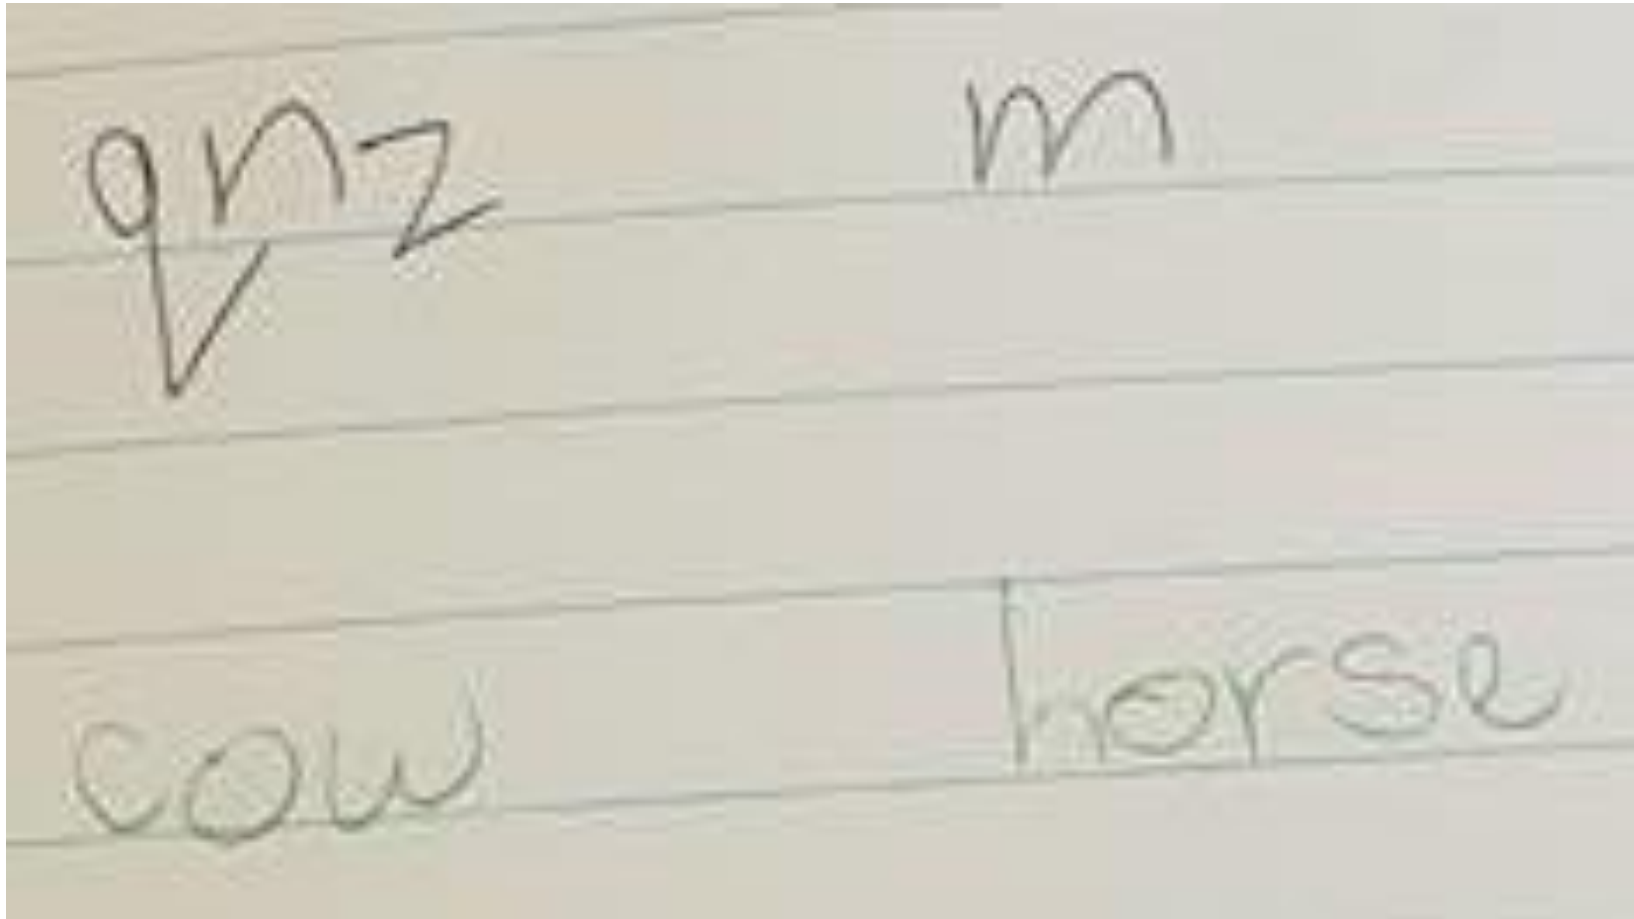 qnz m
cow horse